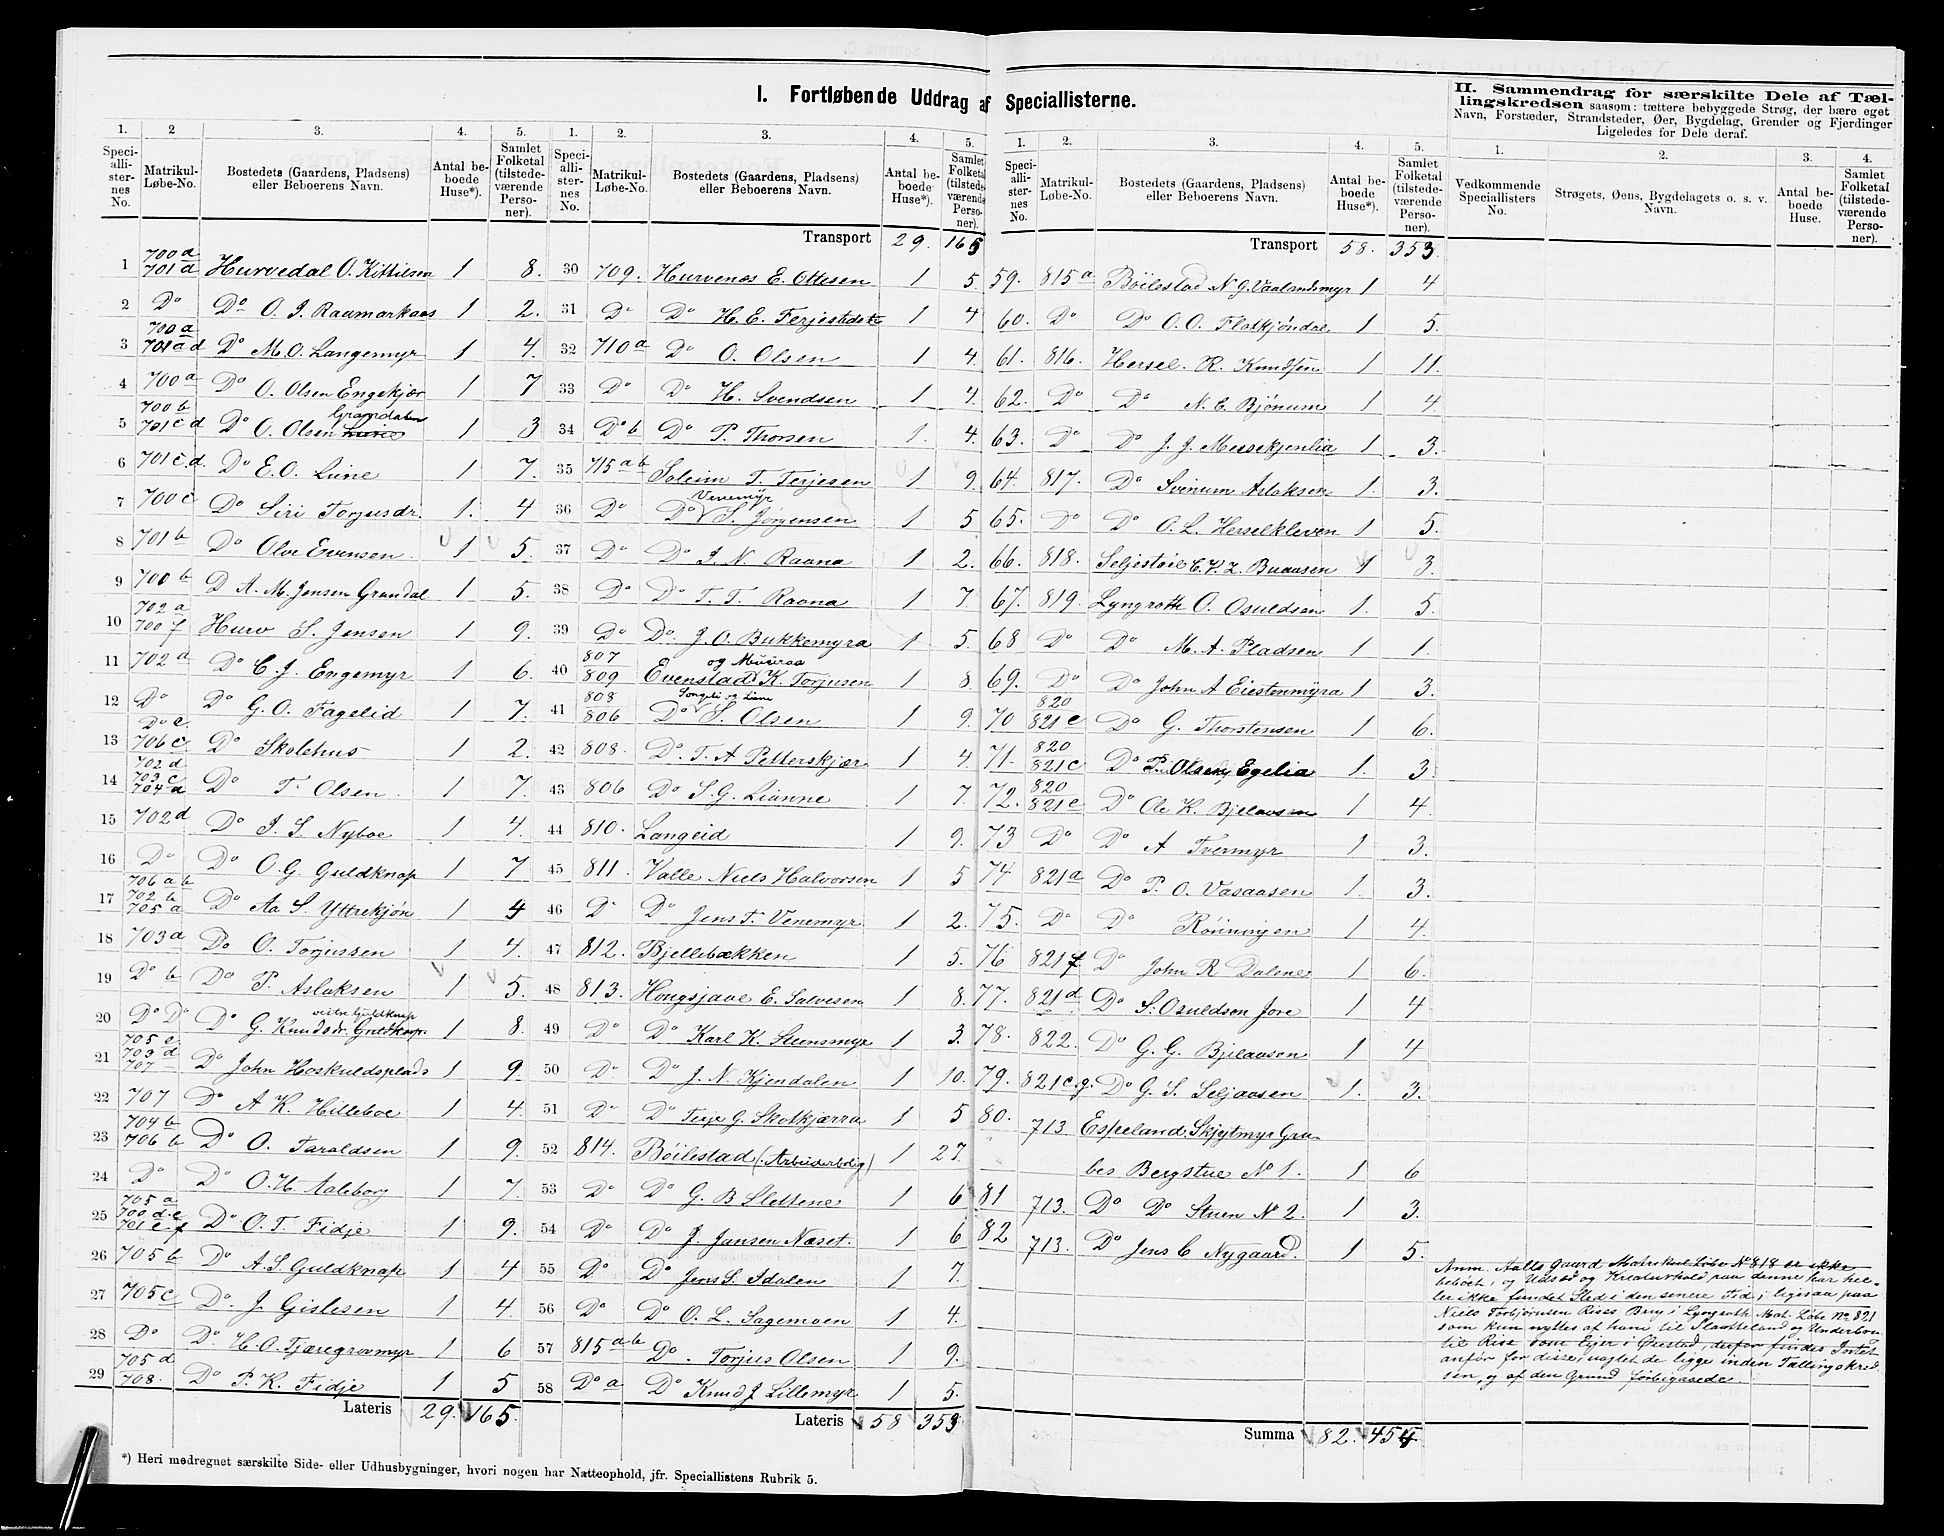 I. Fortløbende Uddrag af Speciallisterne.
II. Sammendrag for særskilte Dele af Tæl-
lingskredsen saasom: tættere bebyggede Strøg, der bære eget
Navn, Forstæder, Strandsteder, Øer, Bygdelag, Grender og Fjerdinger
Ligeledes for Dele deraf.
1. 2 3. 4. 5. 1. 2. 3. 4. 5. 1. 2. 3. 4. 5. 1. 2. 3. 4.
Speciallisternes No. Matrikul-Løbe-No. Bostedets (Gaardens, Pladsens) eller Beboerens Navn. Antal beboede Huse*). Samlet Folketal (tilstedeværende Personer).
Speciallisternes No. Matrikul-Løbe-No. Bostedets (Gaardens, Pladsens) eller Beboerens Navn. Antal beboede Huse*). Samlet Folketal (tilstedeværende Personer).
Speciallisternes No. Matrikul-Løbe-No. Bostedets (Gaardens, Pladsens) eller Beboerens Navn. Antal beboede Huse*). Samlet Folketal (tilstedeværende Personer).
Vedkommende Speciallisters No. Strøgets, Øens, Bygdelagets o. s. v. Navn. Antal beboede Huse. Samlet Folketal (tilstedeværende Personer).
1 700a 701d Hurvedal O. Kittilsen 1 8.
2 Do Do O. J. Raamarkaas 1 2.
3 700a 701a d Do M. O. Langemyr 1 4.
4 700a Do O. Olsen Engekjær 1 7
5 700b 701c d Do O. Olsen Grandalen 1 3
6 701c.d. Do E. O. Liene 1 7.
7 700c Do Siri Torjusdr. 1. 4
8 701b Do Olve Evensen. 1 5.
9 700b D A. M. Jensen Grundal 1 5.
10 702a 700f Hurv S. Jensen 1 9.
11 702a Do C. J. Engemyr 1 6.
12 Do Do G. O. Fagelid 1 7.
13 Do c. 706c Do Skolehus 1 2.
14 702d 703c 704a Do T. Olsen. 1 7.
15 702d Do J. S. Nyboe 1 4.
16 Do Do O. G. Guldknap 1 7
17 706ab 702b 705a Do Aa S. Yttrekjøn 1 4
18 703a Do O. Torjussen 1 4.
19 Do b Do P. Aslaksen 1 5.
20 Do Do Do G. Knudsdr. Guldknap. 1 8.
21 705c. 703d 707 Do John Hoskuldsplads 1 9.
22 707 Do A K. Hilleboe 1 4.
23 704b 706b Do O. Taraldsen 1 9.
24 Do Do O. H. Aaleborg 1 7.
25 705a 700d.e 701e.f Do O. T. Fidje 1 9.
26 705b Do A. S. Guldknap 1 4
27 705c Do J. Gislesen 1 4
28 Do Do H. O. Tjæregrovmyr 1 6
29 705d 708. Do P. K. Fidje 1 5
Lateris 29. 165.
Transport 29. 165
30 709. Hurvenes E. Ottesen 1 5
31 Do Do H. E. Ferjestedet 1 4
32 710a Do O. Olsen 1 4.
33 Do Do H. Svendsen 1 4.
34 Do b Do P. Thorsen 1. 4.
35 715ab Soleim T. Terjesen 1 9.
36 Do Do Venemyr S. Jørgensen 1 5
37 Do Do J. N. Raana 1 2.
38 Do Do T. T. Raana 1 7.
39 Do Do. J. O. Bukkemyra 1 5.
40 807 809 Evenstad og Musiraa K. Torjusen 1 8.
41 808 806 Do Songeli og Liene S. Olsen 1 9.
42 808. Do. T. A Petterskjær 1 4.
43 806 Do S. G. Lianne 1 7.
44 810. Langeid 1 9.
45 811. Valle Niels Halvorsen 1 5
46 D Do Jens T. Venemyr 1 2.
47 812. Bjellebækken 1 5.
48 813. Hongsjaae E. Salvesen 1 8.
49 Do Do Karl K. Steensmyr 1 3.
50 Do Do J. N. Kjendalen 1 10.
51 Do Do Terje G. Skotkjærra 1 5
52 814. Böilestad (Arbeiderbolig) 1 27.
53 Do Do G. B Slettene 1 6
54 Do Do J. Jansen Næset. 1 6
55 Do Do Jens S. Idalen 1 7.
56 Do Do O. L. Sagemoen 1 4.
57 815ab Do. Torjus Olsen 1 9.
58 Do a Do Knud J. Lillemyr 1 5.
Lateris 58 353
Transport 58. 353.
59. 815a Böilestad N. G. Vaalandsmyr 1 4
60. Do Do O. O. Flotkjøndal 1 5.
61. 816. Hersel. R. Knudsen 1 11.
62. Do Do N. E. Bjønum 1 4
63. Do Do J. J. Messekjenlia 1 3.
64. 817. Do Svenum Aslaksen 1. 3.
65. Do Do O. L. Herselkleven 1 5.
66. 818. Seljestöil E. V. Z. Buaasen 1 3.
67. 819. Lyngroth O. Osuldsen 1. 5.
68 Do Do M. A. Pladsen 1 1.
69. Do Do John A Eiestenmyra 1 3.
70 820 821c Do G. Thorstensen 1 6.
71. 820 821c Do P. Olsen Egelia 1. 3
72. 820 821c Do Ole K. Bjelaasen 1 4.
73 Do Do A Tvermyr 1 3.
74 821a Do P. O. Vasaasen 1. 3.
75. Do Do Rönningen 1 4.
76 821f Do John R Dalene 1 6.
77. 821d Do S. Osuldsen Jore 1 4
78. 822. Do G. G. Bjelaasen 1 4
79. 821c.g. Do G. S. Seljaasen 1. 3.
80. 713. Espeland. Skjytmyr Gru-
bes Bergstue No 1. 1 6
81 713. Do Do Stuen No 2. 1 3.
82 713. Do Jens C Nygaard. 1 5.
Summa 82. 454
Anm. Aalls gaard Matrskul Løbe No 818 er ikke
beboet, og Udsæd og Kreaturhold paa denne har hel-
ler ikke fundet Sted i den senere Tid; ligesaa paa
Niels Torbjørnsen Rises Brug i Lyngroth Mat. Løbe No 821
som kun nyttes af ham til Slaatteland og Underbrug
til Rise som Ejer i Øiestad, derfor findes Intet
anført for disse, uagtet de ligge inden Tællingskred-
sen, og af den Grund forbigaaede.
*) Heri medregnet særskilte Side- eller Udhusbygninger, hvori nogen har Natteophold, jfr. Speciallistens Rubrik 5.